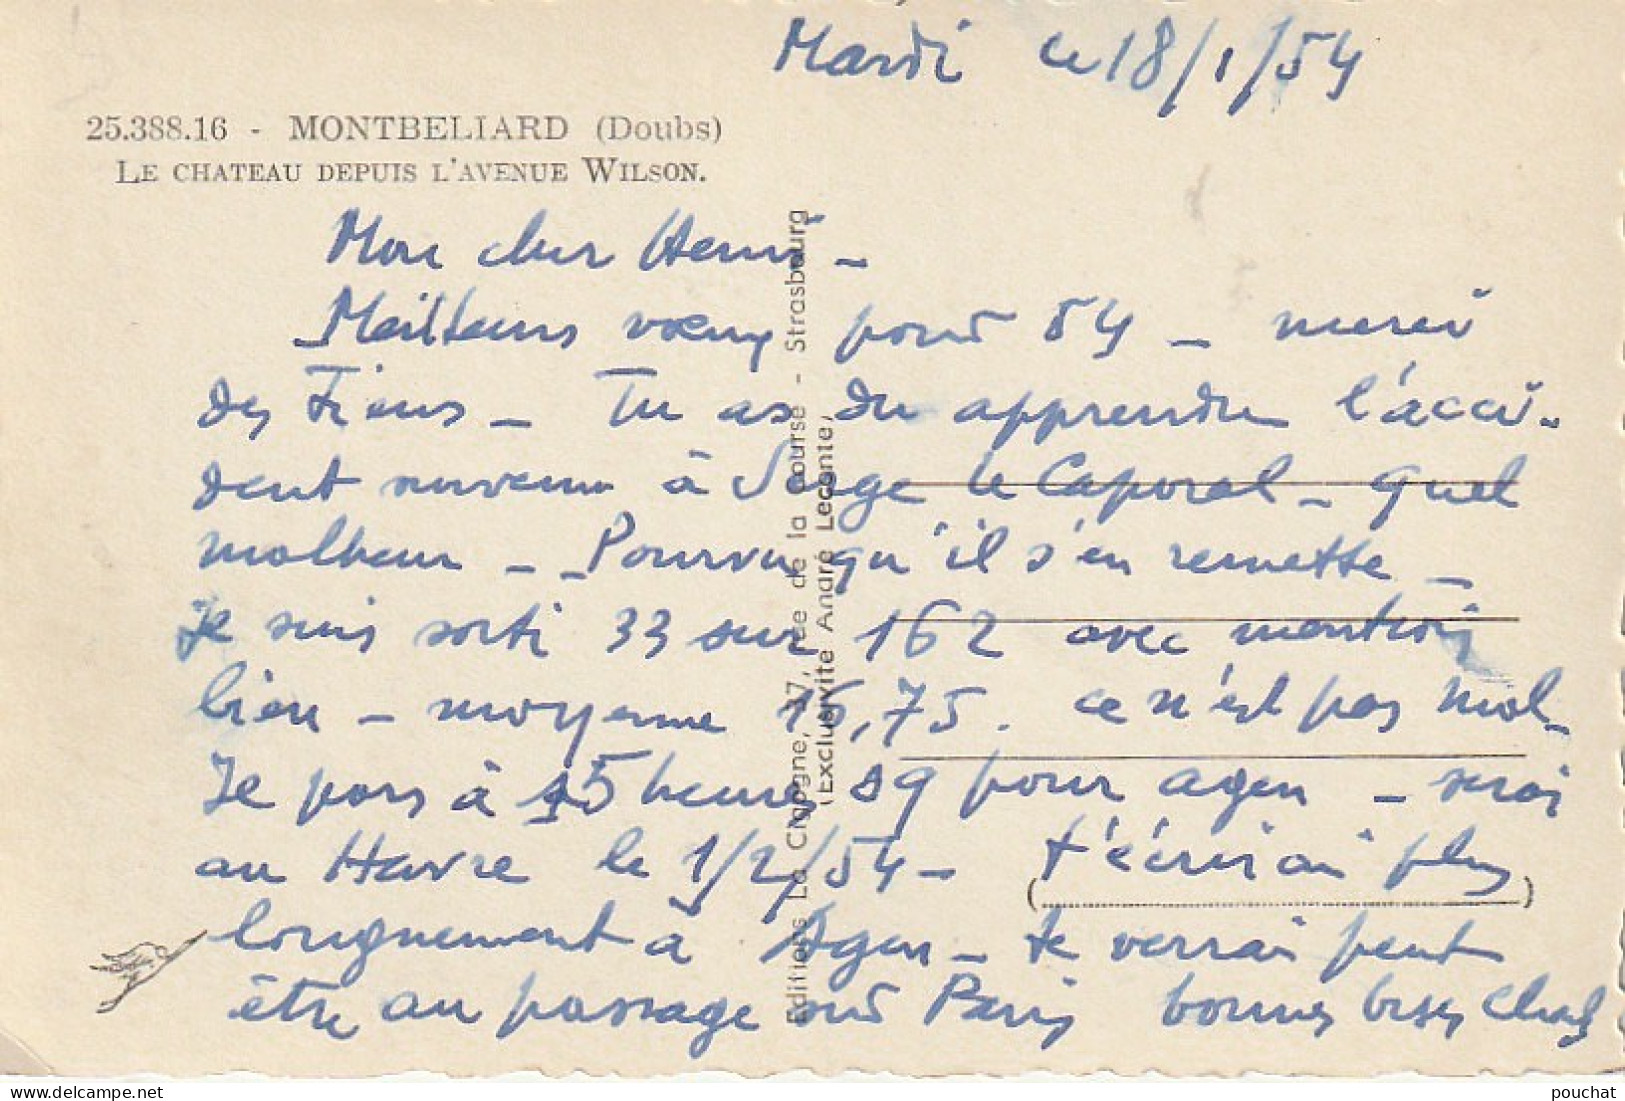 Mardi le 18/1/54
25.388.16 - MONTBELIARD (Doubs)
LE CHATEAU DEPUIS L'AVENUE WILSON.
Mon cher Henri -
Meilleurs vœux pour 54 - merci
des tiens - Tu as du apprendre l'acci-
dent survenu à Serge le Caporal - quel
malheur - - Pourvu qu'il s'en remette -
Je suis sorti 33 sur 162 avec mention
bien - moyenne 15,75. ce n'est pas mal -
Je pars à 15 heures 29 pour agen - serai
au Havre le 1/2/54 - t'écrirai plus
longuement à Agen - te verrai peut
être au passage sur Paris bonnes bises
Editions La Cigogne, 17, rue de la course - Strasbourg
(Exclusivité André Leconte)
pouchat